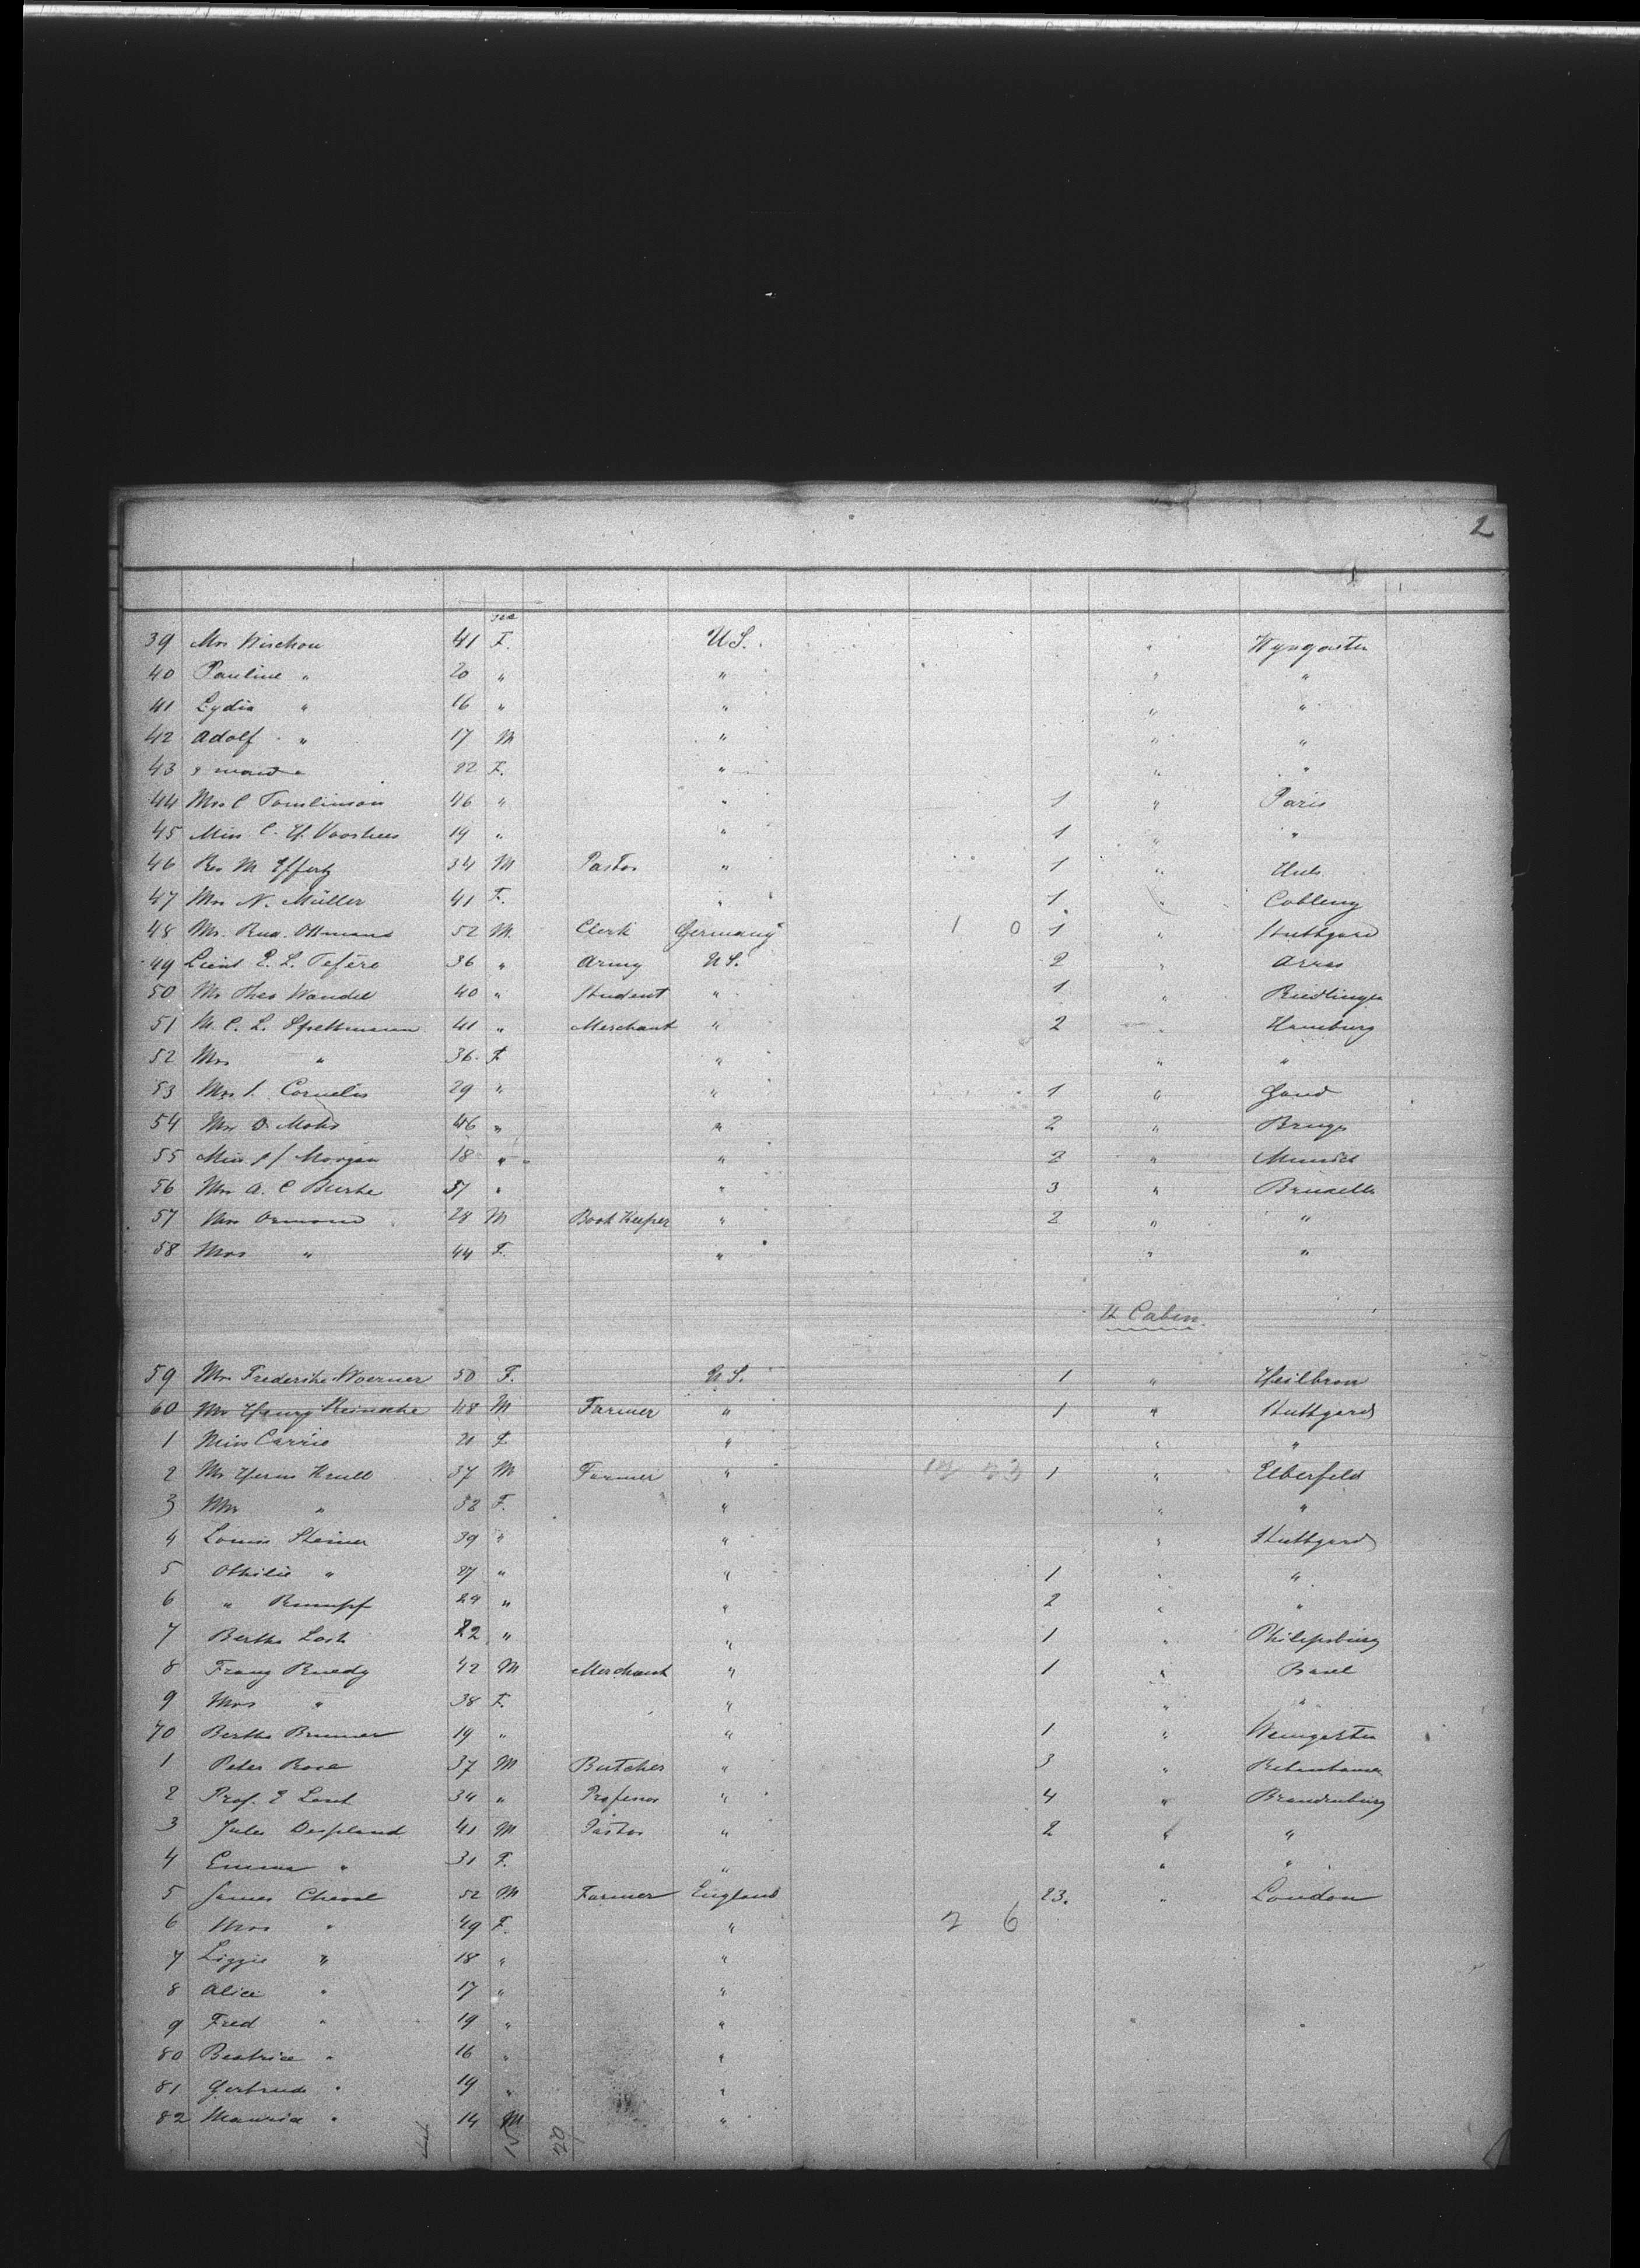 2
39 Mrs Nischou 41 F. U S. " Wyngarten
40 Pauline " 20 " " " "
41 Lydia " 16 " " " "
42 Adolf " 17 M " " "
43 & maid " 22 F. " " "
44 Mrs C Tomlinson 46 " " 1 " Paris
45 Miss C. H. Voorhees 19 " " 1 " "
46 Rev M Effertz 34 M Pastor " 1 "
47 Mrs N. Müller 41 F. " 1 " Coblenz
48 Mr. Ottmann 52 M. Clerk Germany 1 0 1 " Stuttgard
49 Lieut E. L. 36 " Army U S. 2 " Arras
50 Mr Theo Wandel 40 " Student " 1 " Riedlingen
51 M. C. L. Spethmann 41 " Merchant " 2 " Hamburg
52 Mrs " 36 F " " "
53 Mrs Cornelis 29 " " 1 " Gand
54 Mrs D. Mohs 46 " " 2 " Bruges
55 Miss Morgan 18 " " " 2 " Munich
56 Mrs A. C Burke 37 " " 3 " Bruxelles
57 Mr Ormond 28 M Book Keeper " 2 " "
58 Mrs " 44 F. " " "
II Cabin.
59 Mrs Frederike Woerner 50 F. U S. 1 " Heilbron
60 Mr Henry Reinecke 48 M Farmer " 1 " Stuttgard
1 Miss Carrie 21 F " " "
2 Mr Herm Krull 37 M Farmer " 1 " Elberfeld
3 Mrs " 32 F. " " "
4 Louise Steiner 39 " " " Stuttgard
5 Othilie " 27 " " 1 " "
6 " Rumpf 29 " " 2 " "
7 Bertha Lash 22 " " 1 " Philipsburg
8 Franz Ruedy 42 M Merchant " 1 " Basel
9 Mrs " 38 F. " " "
70 Bertha Brunner 19 " " 1 " Weingarten
1 Peter Rose 37 M Butcher " 3 "
2 Prof. E Lant 34 " Profesor " 4 " Brandenburg
3 Jules Despland 41 M Pastor " 2 " "
4 Emma " 31 F. " " "
5 James Cheval 52 M Farmer England 23. " London
6 Mrs " 49 F. " 2 6
7 Lizzie " 18 " "
8 Alice " 17 " "
9 Fred " 19 " "
80 Beatrice " 16 " "
81 Gertrude " 19 " "
82 Maurice " 14 M "